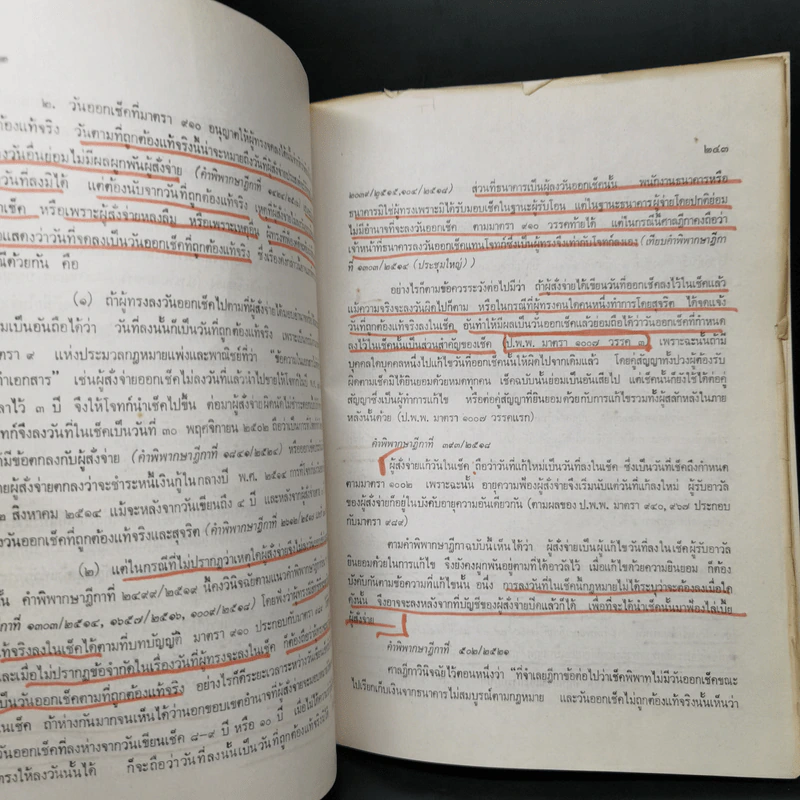 ๓
๒. วันออกเช็คที่มาตรา ๙๑๐ อนุญาตให้ผู้ทรงจดลงได้
ต้องแท้จริง วันตามที่ถูกต้องแท้จริงนี้น่าจะหมายถึงวันที่ผู้สั่งจ่าย
ลงวันอื่นย่อมไม่มีผลผูกพันผู้สั่งจ่าย (คำพิพากษาฎีกาที่
วันที่ลงมิได้ แต่ต้องนับจากวันที่ถูกต้องแท้จริง
เช็ค หรือเพราะผู้สั่งจ่ายหลงลืม หรือเพราะเหตุอื่น
แสดงว่าวันที่จดลงเป็นวันออกเช็คที่ถูกต้องแท้จริง
ณีด้วยกัน คือ
(๑) ถ้าผู้ทรงลงวันออกเช็คไปตามที่ผู้สั่งจ่ายได้
มเป็นอันถือได้ว่า วันที่ลงนั้นก็เป็นวันที่ถูกต้องแท้จริง
ตรา ๙ แห่งประมวลกฎหมายแพ่งและพาณิชย์ที่ว่า
ทำเอกสาร" เช่นผู้สั่งจ่ายออกเช็คไม่ลงวันที่แล้วนำไปขายให้โจทก์
ลาไว้ ๓ ปี จึงให้โจทก์นำเช็คไปขึ้น ต่อมาผู้สั่งจ่ายผิดนัด
ทก์จึงลงวันที่ในเช็คเป็นวันที่ ๓๐ พฤศจิกายน ๒๕๐๒
ามีข้อตกลงกับผู้สั่งจ่าย (คำพิพากษาฎีกาที่ ๑๘๔๑/๒๕๒๔)
ดยผู้สั่งจ่ายตกลงว่าจะชำระหนี้เงินกู้ในกลางปี พ.ศ. ๒๕๑๔
๒ สิงหาคม ๒๕๑๔ แม้จะหลังจากวันเขียนถึง ๔ ปี
งวันออกเช็คที่ถูกต้องแท้จริงและสุจริต (คำพิพากษาฎีกาที่
(๒) แต่ในกรณีที่ไม่ปรากฏว่าเหตุใดผู้สั่งจ่ายจึงไม่ลงวัน
นั้น คำพิพากษาฎีกาที่ ๒๔๙๙/๒๕๑๙ นี้คงวินิจฉัยตามแนวคำพิพากษา
ฎีกาที่ ๑๓๐๓/๒๕๑๔, ๑๖๕๗/๒๕๑๖, ๑๐๐๙/๒๕๑๘) โดยฟังว่า
แท้จริงลงในเช็คได้ตามที่บทบัญญัติ มาตรา ๙๑๐ ประกอบกับมาตรา
และเมื่อไม่ปรากฏข้อจำกัดในเรื่องวันที่ผู้ทรงจะลงในเช็ค ก็ต้องถือว่า
เป็นวันออกเช็คตามที่ถูกต้องแท้จริง อย่างไรก็ดีระยะเวลาระหว่างวัน
ในเช็ค ถ้าห่างกันมากจนเห็นได้ว่านอกขอบเขตอำนาจที่ผู้สั่งจ่าย
วันออกเช็คที่ลงห่างจากวันเขียนเช็ค ๘-๙ ปี หรือ ๑๐ ปี
ทรงให้ลงวันนั้นได้ ก็จะถือว่าวันที่ลงนั้นเป็นวันที่ถูกต้องแท้จริง
๒๔๓
๒๐๓๙/๒๕๑๕,๑๐๔/๒๕๑๘) ส่วนที่ธนาคารเป็นผู้ลงวันออกเช็คนั้น พนักงานธนาคารหรือ
ธนาคารมิใช่ผู้ทรงเพราะมิได้รับมอบเช็คในฐานะผู้รับโอน แต่ในฐานะธนาคารผู้จ่ายโดยปกติย่อม
ไม่มีอำนาจที่จะลงวันออกเช็ค ตามมาตรา ๙๑๐ วรรคท้ายได้ แต่ในกรณีนี้ศาลฎีกาคงถือว่า
เจ้าหน้าที่ธนาคารลงวันออกเช็คแทนโจทก์ซึ่งเป็นผู้ทรงจึงเท่ากับโจทก์ลงเอง (เทียบคำพิพากษาฎีกา
ที่ ๑๓๐๓/๒๕๑๔ (ประชุมใหญ่))
อย่างไรก็ตามข้อควรระวังต่อไปมีว่า ถ้าผู้สั่งจ่ายได้เขียนวันที่ออกเช็คลงไว้ในเช็คแล้ว
แม้ความจริงจะลงวันผิดไปก็ตาม หรือในกรณีที่ผู้ทรงคนใดคนหนึ่งทำการโดยสุจริต ได้จดแจ้ง
วันที่ถูกต้องแท้จริงลงในเช็ค อันทำให้มีผลเป็นวันออกเช็คแล้วย่อมถือได้ว่าวันออกเช็คที่กำหนด
ลงไว้ในเช็คนั้นเป็นส่วนสำคัญของเช็ค (ป.พ.พ. มาตรา ๑๐๐๗ วรรค ๓) เพราะฉะนั้นถ้ามี
บุคคลใดบุคคลหนึ่งไปแก้ไขวันที่ออกเช็คนั้นให้ผิดไปจากเดิมแล้ว โดยคู่สัญญาทั้งปวงผู้ต้องรับ
ผิดตามเช็คมิได้ยินยอมด้วยหมดทุกคน เช็คฉบับนั้นย่อมเป็นอันเสียไป แต่เช็คนั้นก็ยังใช้ได้ต่อคู่
สัญญาซึ่งเป็นผู้ทำการแก้ไข หรือต่อคู่สัญญาที่ยินยอมด้วยกับการแก้ไขรวมทั้งผู้สลักหลังในภาย
หลังนั้นด้วย (ป.พ.พ. มาตรา ๑๐๐๗ วรรคแรก)
คำพิพากษาฎีกาที่ ๓๙๓/๒๕๑๘
ผู้สั่งจ่ายแก้วันในเช็ค ถือว่าวันที่แก้ใหม่เป็นวันที่ลงในเช็ค ซึ่งเป็นวันที่เช็คถึงกำหนด
ตามมาตรา ๑๐๐๒ เพราะฉะนั้น อายุความฟ้องผู้สั่งจ่ายจึงเริ่มนับแต่วันที่แก้ลงใหม่ ผู้รับอาวัล
ผู้สั่งจ่ายก็อยู่ในบังคับอายุความอันเดียวกัน (ตามผลของ ป.พ.พ. มาตรา ๙๔๐, ๙๖๗ ประกอบ
กับมาตรา ๙๘๙)
ตามคำพิพากษาฎีกาฉบับนี้เห็นได้ว่า ผู้สั่งจ่ายเป็นผู้แก้ไขวันที่ลงในเช็คผู้รับอาวัล
ยินยอมด้วยในการแก้ไข จึงยังคงผูกพันอยู่ตามที่ได้อาวัลไว้ เมื่อแก้ไขด้วยความยินยอม ก็ต้อง
บังคับกันตามข้อความที่แก้ไขนั้น อนึ่ง การลงวันที่ในเช็คนี้กฎหมายไม่ได้ระบุว่าจะต้องลงเมื่อใด
ดังนั้น จึงอาจจะลงหลังจากที่บัญชีของผู้สั่งจ่ายปิดแล้วก็ได้ เพื่อที่จะได้นำเช็คนั้นมาฟ้องไล่เบี้ย
ผู้สั่งจ่าย
คำพิพากษาฎีกาที่ ๕๐๒/๒๕๒๑
ศาลฎีกาวินิจฉัยไว้ตอนหนึ่งว่า "ที่จำเลยฎีกาข้อต่อไปว่าเช็คพิพาทไม่มีวันออกเช็คขณะ
ไปเรียกเก็บเงินจากธนาคารไม่สมบูรณ์ตามกฎหมาย และวันออกเช็คไม่ถูกต้องแท้จริงนั้นเห็นว่า